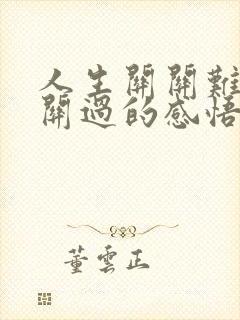 人生關關難
關過的感悟
董雲正